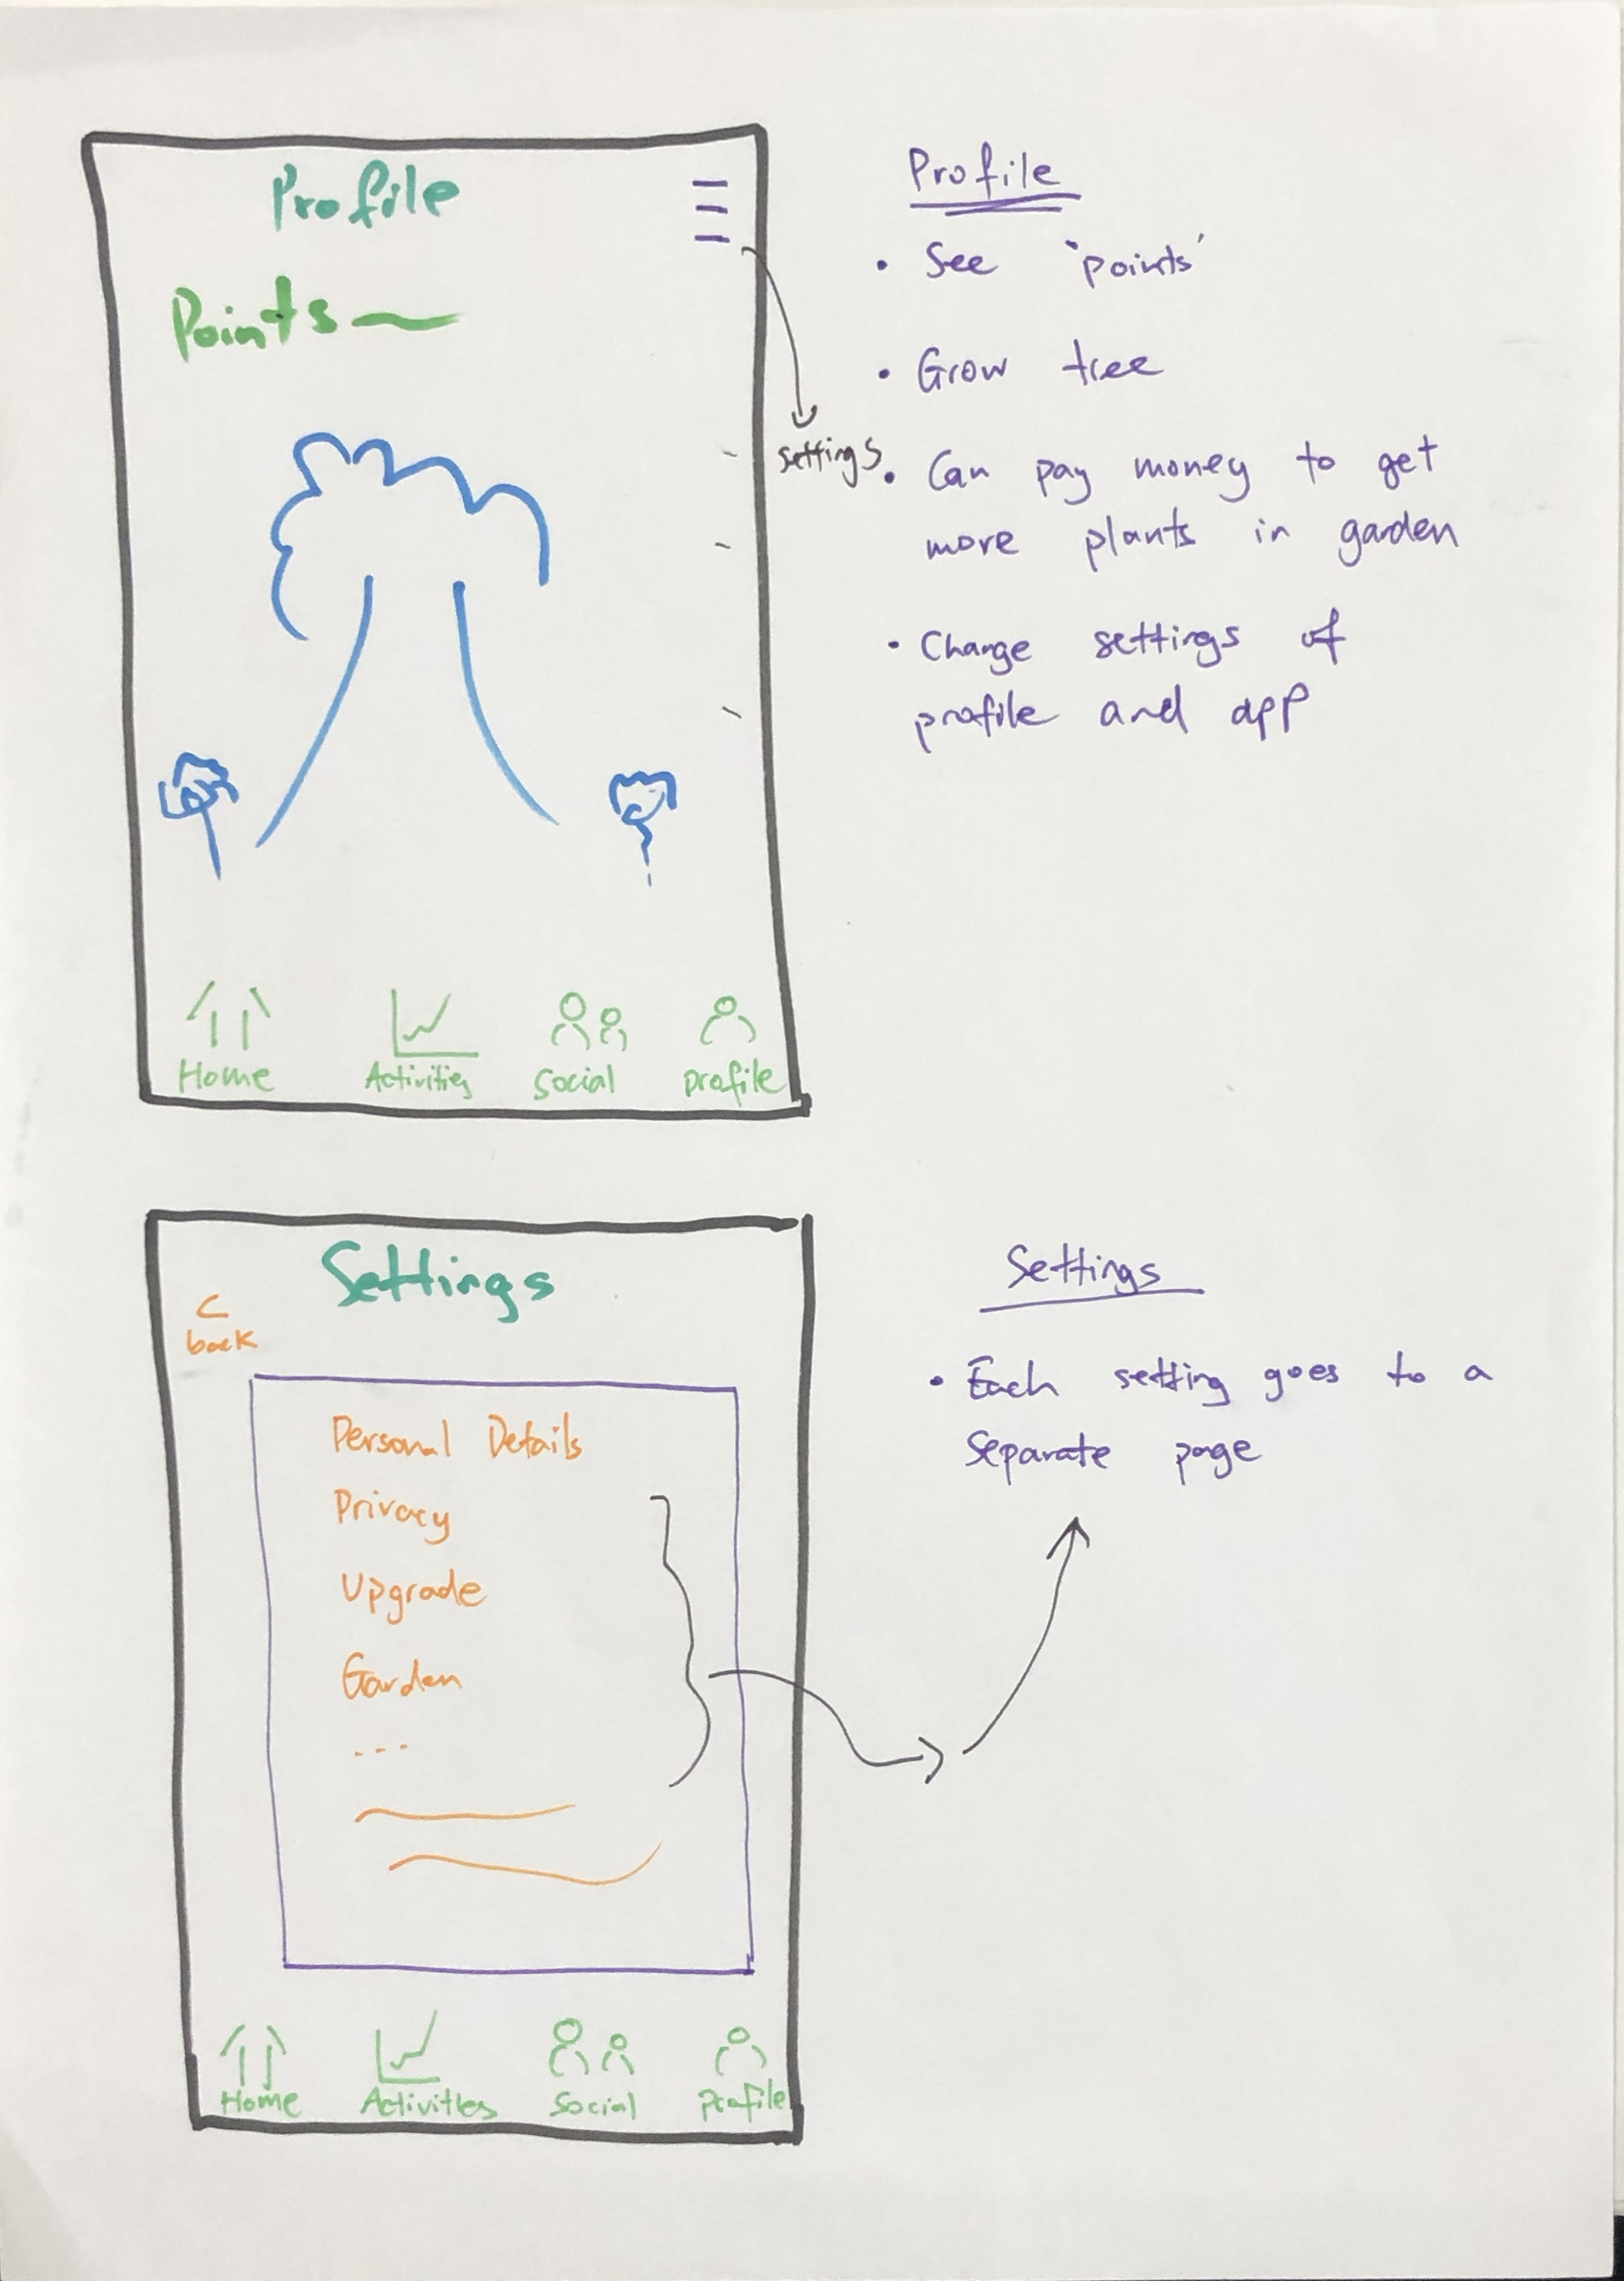 Profile
Points
settings
Home Activities Social profile
Profile
• See 'points'
• Grow tree
• Can pay money to get
more plants in garden
• Change settings of
profile and app
Settings
< back
Personal Details
Privacy
Upgrade
Garden
...
Home Activities Social profile
Settings
• Each setting goes to a
separate page